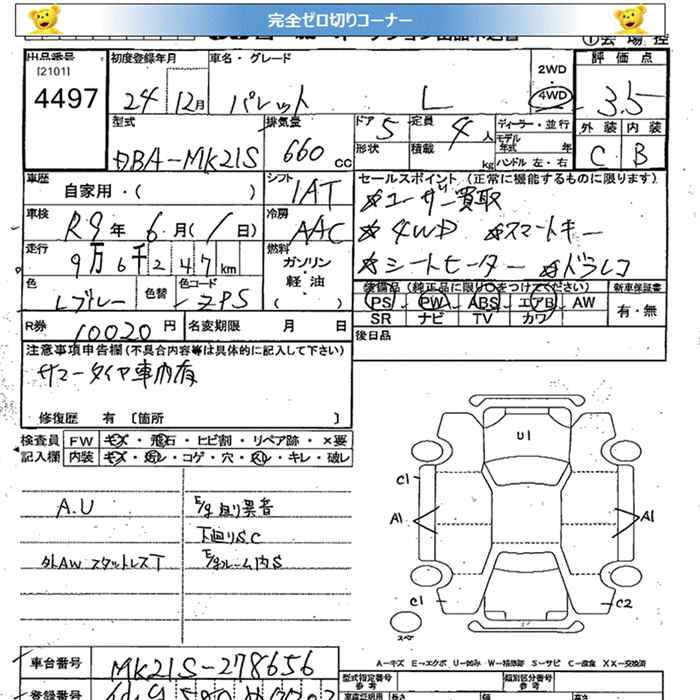 完全ゼロ切りコーナー
出品番号 初度登録年月 車名・グレード 2WD・4WD 評価点
[2101]
4497 24 12月 パレット L 3.5
型式 排気量 ドア 5 定員 4人 ディーラー・並行 外装 内装
DBA-MK21S 660cc 形状 積載 kg モデル年式 年 ハンドル 左・右 C B
車歴 自家用・( ) シフト 1AT セールスポイント (正常に機能するものに限ります)
☆ユーザー買取
車検 R9年6月(1日) 冷房 AAC ☆4WD ☆スマートキー
走行 9万6千247km 燃料 ガソリン・軽油 ☆シートヒーター ☆ドラレコ
色 Lブルー 色替 色コード ZPS 装備品 (純正品に限り○をつけてください) 新車保証書
PS PW ABS エアB AW 有・無
SR ナビ TV カワ
R券 10020円 名変期限 月 日 後日品
注意事項申告欄(不具合内容等は具体的に記入して下さい)
サマータイヤ車内有
修復歴 有 〔箇所 〕
検査員 FW キズ・飛石・ヒビ割・リペア跡・×要
記入欄 内装 キズ・汚レ・コゲ・穴・スレ・キレ・破レ
A.U E/g廻り異音
下廻りS.C
外AW スタットレスT E/gルーム内S
U1
C1
A1 A1
C1 C2
スペア
A-キズ E-エクボ U-凹み W-補修跡 S-サビ C-腐食 XX-交換済
車台番号 MK21S-278656 型式指定番号 参考 類別区分番号 参考
登録番号 長さ 幅 高さ